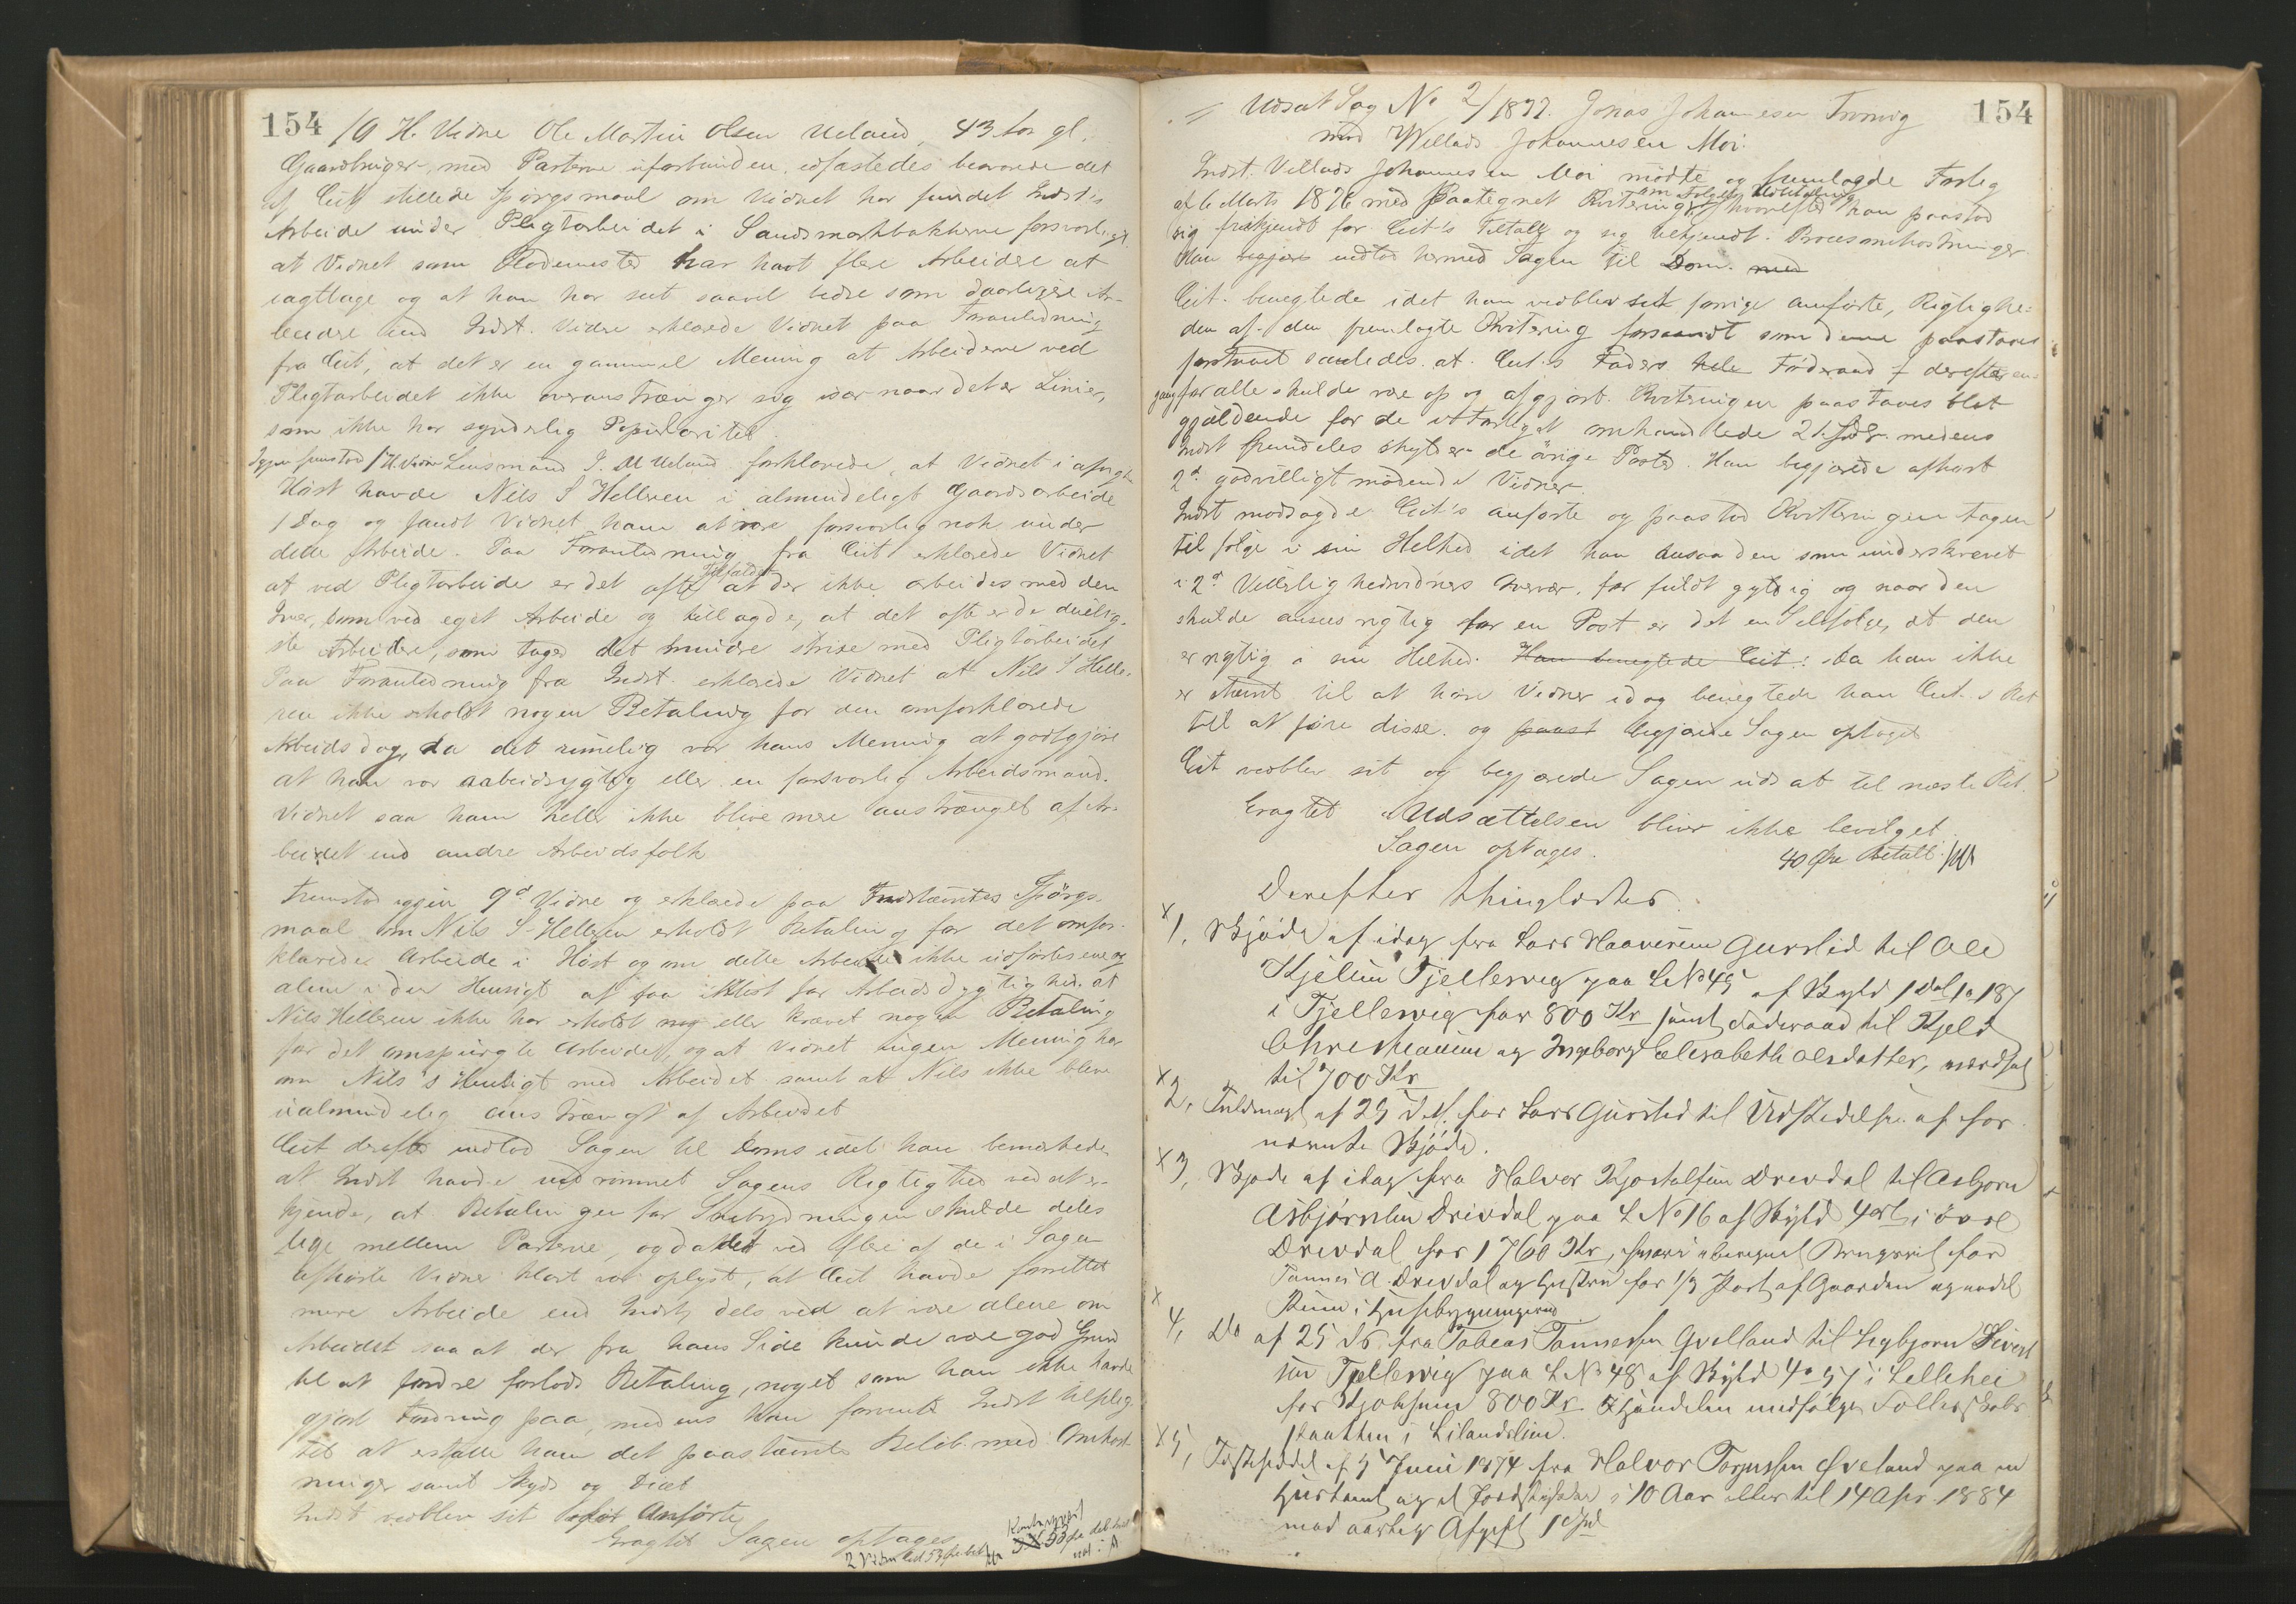 154
10 H. Vidne Ole Martin Olsen Ueland, 43 Aar gl.
Gaardbruger, med Parterne uforbunden, edfæstedes besvarede det
af Cit. stillede Spørgsmaal om Vidnet har fundet Indst's
Arbeide under Pligtarbeidet i Sandsmarkbakkerne forsvarligt
at Vidnet som Rodemester har havt flere Arbeidere at
iagttage og at han har seet saavel bedre som daarligere Ar-
beidere end Indst. Videre erklærede Vidnet paa Foranledning
fra Cit., at det er en gammel Mening at Arbeiderne ved
Pligtarbeidet ikke overanstrænger sig især naar det er Linier,
som ikke har synderlig Popularitet.
Lensmand Ueland forklarede, at Vidnet i afvigte
Høst havde Nils S Helleren i almindeligt Gaardsarbeide
1 Dag og fandt Vidnet ham at være forsvarlig nok under
dette Arbeide. Paa Foranledning fra Cit erklærede Vidnet
at ved Pligtarbeide er det ofte Tilfældet at der ikke arbeides med den
Iver, som ved eget Arbeide og tillagde, at det ofte er de duelig-
ste Arbeidere, som tager det mindre strixe med Pligtarbeidet
Paa Foranledning fra Indst. erklærede Vidnet at Nils S Helle-
ren ikke erholdt nogen Betaling for den omforklarede
Arbeidsdag, da det rimelig var hans Mening at godtgjøre
at han var arbeidsdygtig eller en forsvarlig Arbeidsmand.
Vidnet saa ham heller ikke blive mere anstrænget af Ar-
beidet end andre Arbeidsfolk
Fremstod igjen 9d Vidne og erklærede paa Indstævntes Spørgs-
maal om Nils S. Helleren erholdt Betaling for det omfor-
klarede Arbeide i Høst og om dette Arbeide ikke udførtes ene og
alene i den Hensigt at faa Attest for Arbeidsdygtighed, at
Nils Helleren ikke har erholdt eller krævet nogen Betaling
for det omspurgte Arbeide, og at Vidnet ingen Mening har
om Nils's Hensigt med Arbeidet samt at Nils ikke blev
ualmindelig anstrængt af Arbeidet
Cit derefter indlod Sagen til Doms idet han bemærkede
at Indst havde indrømmet Sagens Rigtighed ved at er-
kjende, at Betalingen for Snebrydningen skulde deles
lige mellem Parterne, og da det ved flere af de i Sagen
afhørte Vidner klart var oplyst, at Cit havde forrettet
mere Arbeide end Indst, dels ved at være alene om
Arbeidet saa at der fra hans Side kunde være god Grund
til at fordre forlods Betaling, noget som han ikke havde
gjort Fordring paa, medens han formente Indst tilplig-
tet at erstatte ham det paastævnte Beløb med Omkost-
ninger samt Skyds og Diæt
Indst vedblev sit før Anførte
Eragtet Sagen optages
154
Udsat Sag No 2/1877. Jonas Johannesen
mod Willads Johannesen Moi.
Indst. Villads Johannesen Moi mødte og fremlagde Forlig
af 6 Marts 1876 med Paategnet Kvitering hvorefter han paastod
sig frikjendt for Cit's Tiltale og sig tilkjendt Procesomkostninger.
Han indlod hermed Sagen til Dom. med
Cit. benegtede idet han vedblev sit forrige anførte, Rigtighe-
den af den fremlagte Kvitering forsaavidt som denne paastaaes
forstaaet saaledes at Cit.s Faders hele Føderaad derefter en-
gang for alle skulde være op og afgjort. Kviteringen paastaaes blot
gjældende for de i Forliget omhandlede medens
Indst fremdeles skylder de øvrige Poster. Han begjærede afhørt
2de godvilligt mødende Vidner.
Indst modsagde Cit's anførte og paastod Kvitteringen tagen
til følge i sin Helhed idet han ansaa den som underskrevet
i 2de Vitterlighedsvidners Nærvær, for fuldt gyldig og naar den
skulde ansees rigtig for en Post er det en Selvfølge, at den
er rigtig i sin Helhed. Han benegtede Cit. Da han ikke
er stævnt til at høre Vidner idag benegtede han Cit.s Ret
til at føre disse og paast begjærede Sagen optaget
Cit vedblev sit og begjærede Sagen udsat til næste Ret.
Eragtet Udsættelsen bliver ikke bevilget.
Sagen optages.
40 Øre Betalt
Derefter thinglæstes.
1, Skjøde af idag fra Lars Haaversen Gursli til Ole
Kjelsen Fjellesvig paa L No 45 af Skyld 1 Dal 1 o 18 s
i Fjellesvig for 800 Kr samt Føderaad til Kjeld
Christiansen og Ingeborg Elisabeth Olsdatter, værdsat
til 700 Kr
2, Fuldmagt af 25 d.M. for Lars Gursli til Udstedelse af for-
nævnte Skjøde.
3, Skjøde af idag fra Halvor Kjøstolfsen Drivdal til Asbjørn
Asbjørnsen Drivdal paa L No 16 af Skyld 4 ort i øvre
Drivdal for 1760 Kr, Brugsret for
Tønnes A. Drivdal og Hustru for 1/3 Part af Gaarden og andel
Rum i Husebygningerne
4, Do af 25 ds fra Tobias Tønnesen Qvelland til Sigbjørn Sivert-
sen Fjellesvig paa L No 48 af Skyld i Lellehei
for Kjøbesum 800 Kr.
i Lilandslien.
5, Fæsteseddel af 5 Juni 1874 fra Halvor Torjussen Øveland paa en
Hustomt og et Jordstykke i 10 Aar eller til 14 Apr. 1884
mod aarlig Afgift 1